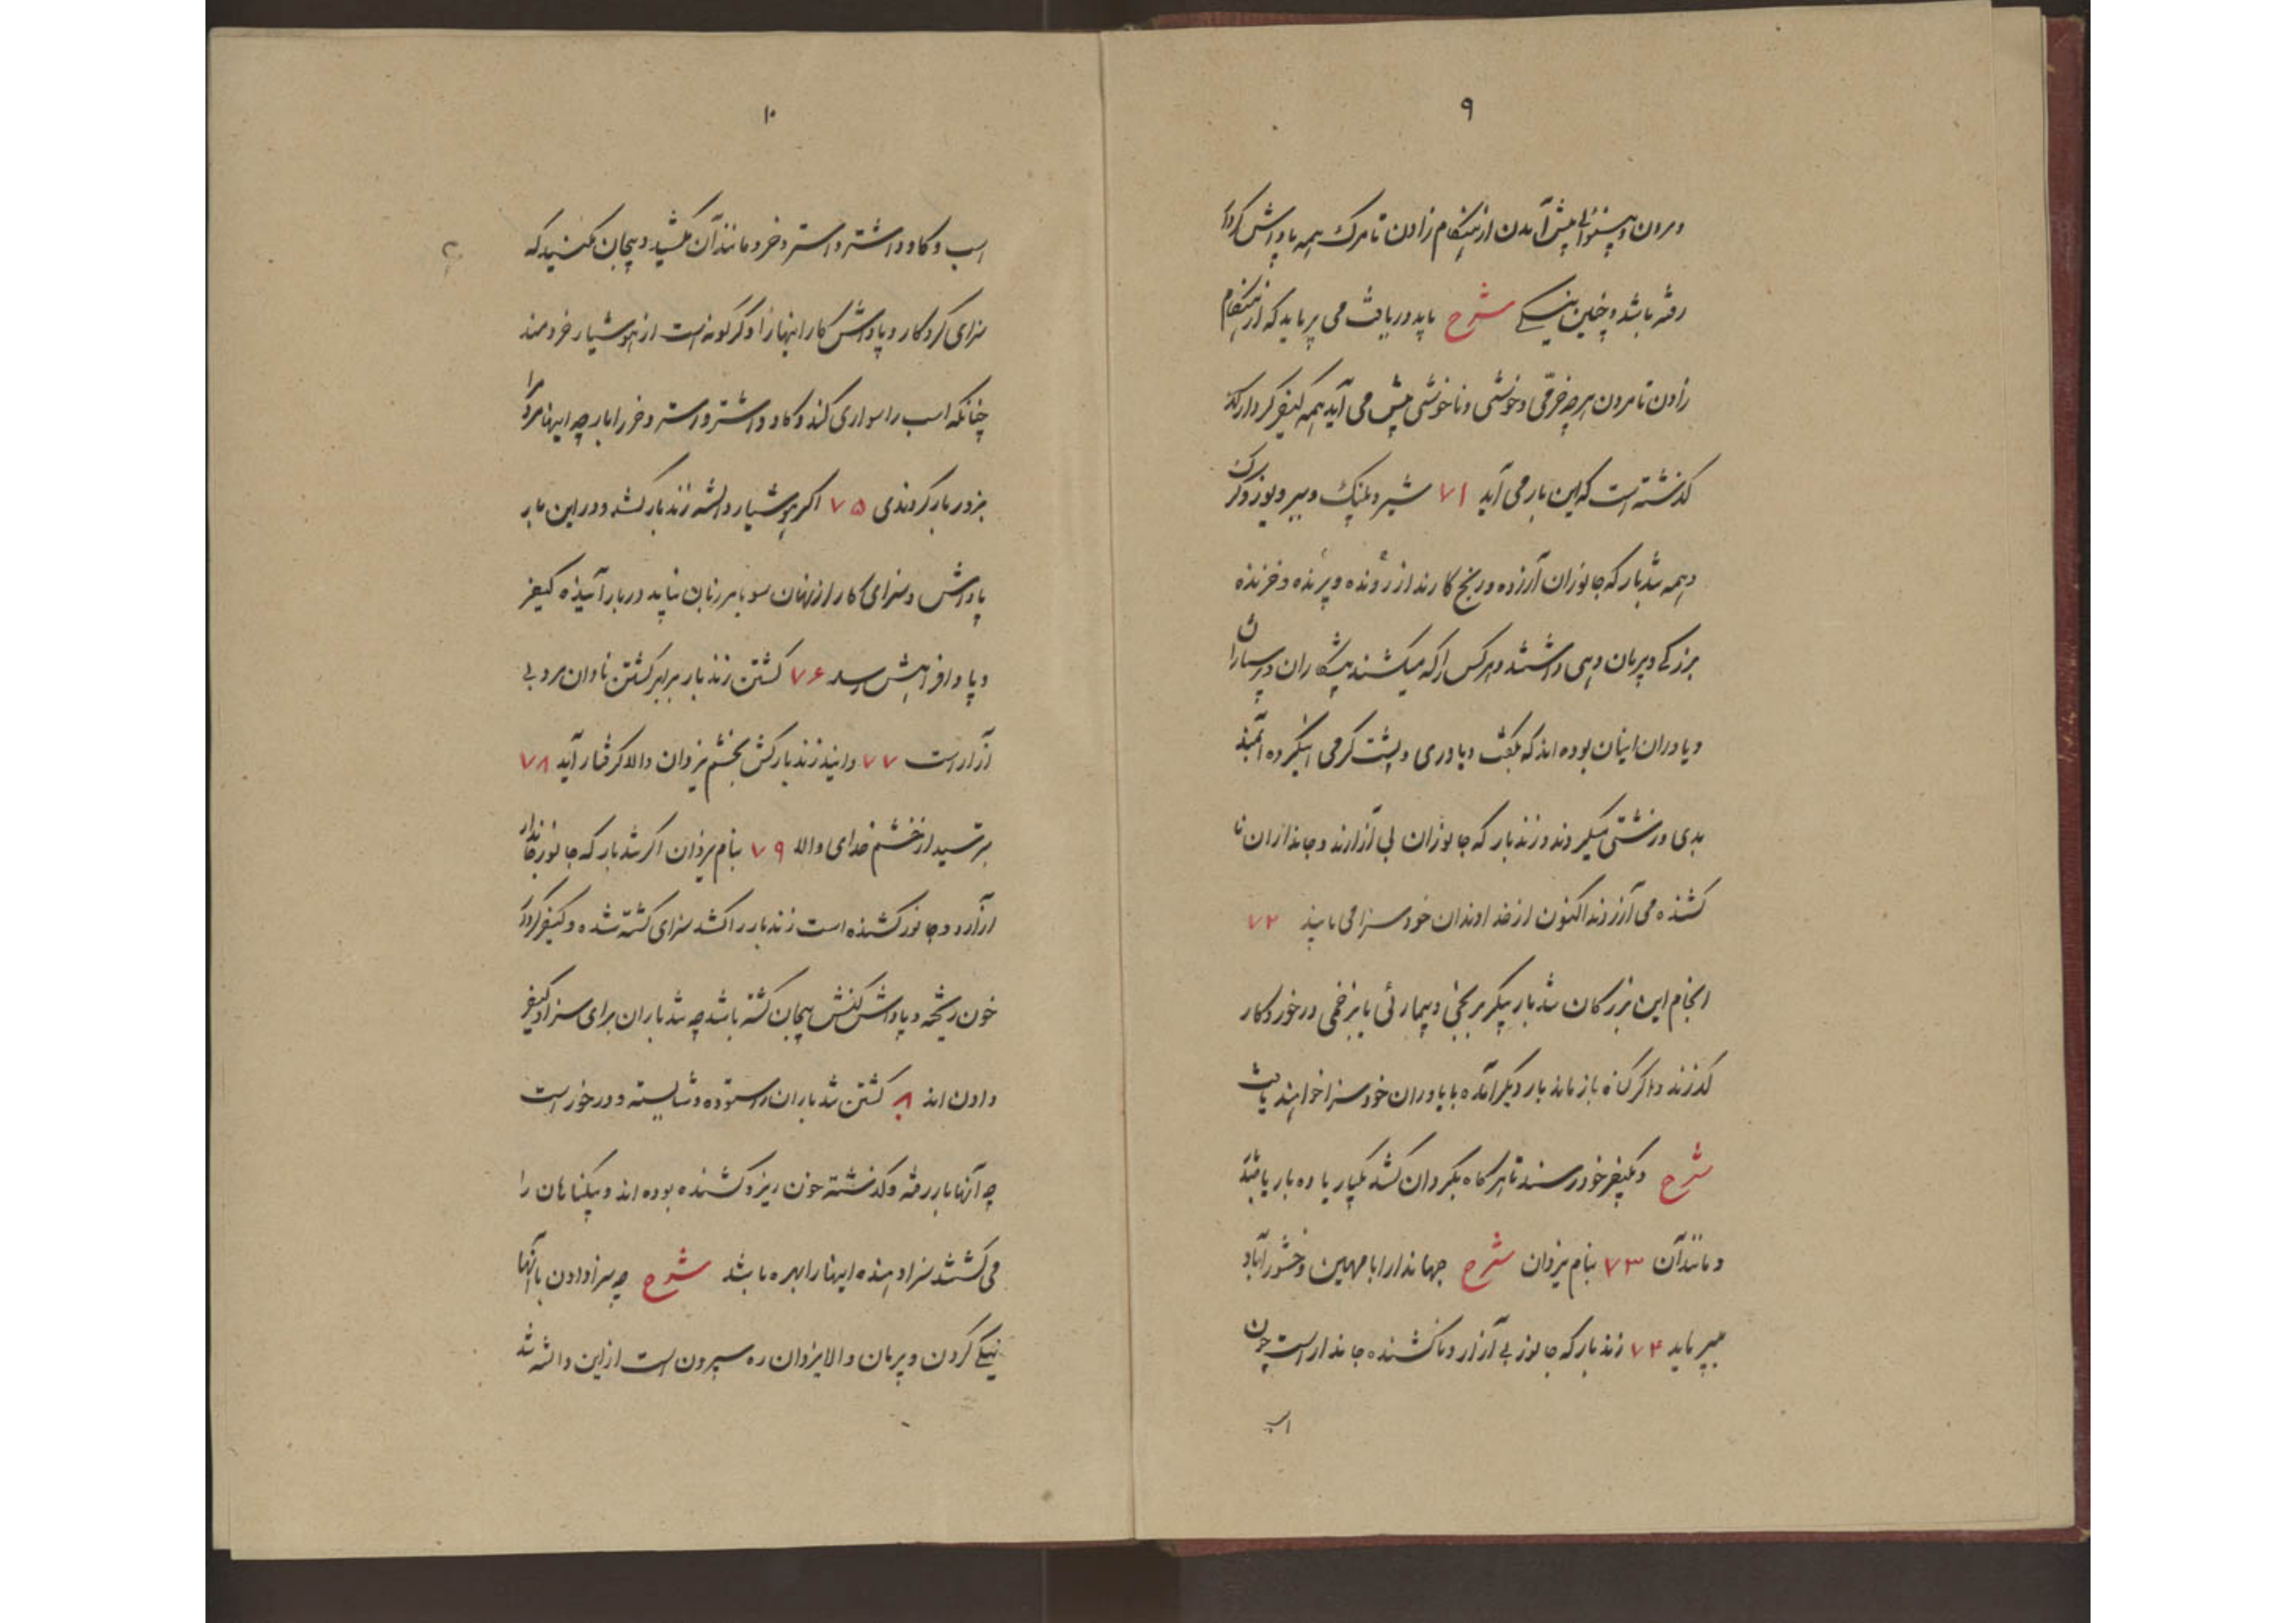 ۹
و مردن و بینوایی پیش آمدن از هنگام زادن تا مرگ همه پاداش کردار
رفته باشد و چنین نیکی شرح باید دریافت می پرماید که از هنگام
زادن تا مردن هرچه خرّمی و خوشی و ناخوشی پیش می آید همه کیفر کردار
گذشته است که این بار می آید ۷۱ شیر و پلنگ و ببر و یوز و گرگ
و همه تندبار که جانوران آزرده و رنج کارند از رونده و پرنده و خزنده
بزرگی و پرمان دهی داشتند و هرکس را که میکشند پیشکاران و پرستاران
و یاوران اینان بوده اند که بگفت و یاوری و پشت گرمی اینگروه
بدی و زشتی میکردند و زندبار که جانوران بی آزارند و جانداران نا
کشنده می آزردند اکنون از خداوندان خود سزا می یابند ۷۲
انجام این بزرگان تندبار پیکر برنجی و بیماریی یا بزخمی درخور کار
گذرند و اگر گناه بازماند بار دیگر آمده با یاوران خود سزا خواهند یافت
شرح و بکیفر خود رسند تا هرگاه بکردان کشد یکبار یا ده بار یا صد
و مانند آن ۷۳ بنام یزدان شرح جهاندارا با مهین وخشور آباد
میپرماید ۷۴ زندبار که جانور بی آزار و ناکشنده جاندار است چون
اسب
۱۰
اسب و گاو و اشتر و استر و خر و مانند آن مکشید و بیجان مکنید که
سزای کردگار و پاداش کار اینها را دگرگونه است از هوشیار خردمند
چنانکه اسب را سواری کنند و گاو و اشتر و استر و خر را بار چه اینها مردم را
بزور بار کردندی ۷۵ اگر هوشیار دانسته زندبار کشد و در این بار
پاداش و سزای کار از نهان سو یا مرزبان نیابد در بار آینده کیفر
و پاداافراهش رسد ۷۶ کشتن زندبار برابر کشتن نادان مرد بی
آزار است ۷۷ دانید زندبار کش بخشم یزدان والا گرفتار آید ۷۸
بترسید از خشم خدای والا ۷۹ بنام یزدان اگر تندبار که جانور جاندار
آزارد و جانور کشنده است زندبار را کشد سزای کشته شده و کیفر کردار
خون ریخته و پاداش کنش بیجان گشته باشد چه تندباران برای سزا و کیفر
دادن اند ۸۰ کشتن تندباران را ستوده و شایسته و درخور است
چه آنها بار رفته و گذشته خون ریز و کشنده بوده اند و بیگناهان را
می کشتند سزا دهنده اینها را بهره باشد شرح چه سزا دادن بآنها
نیکی کردن و پرمان والا یزدان ره سپردن است از این دانسته شد